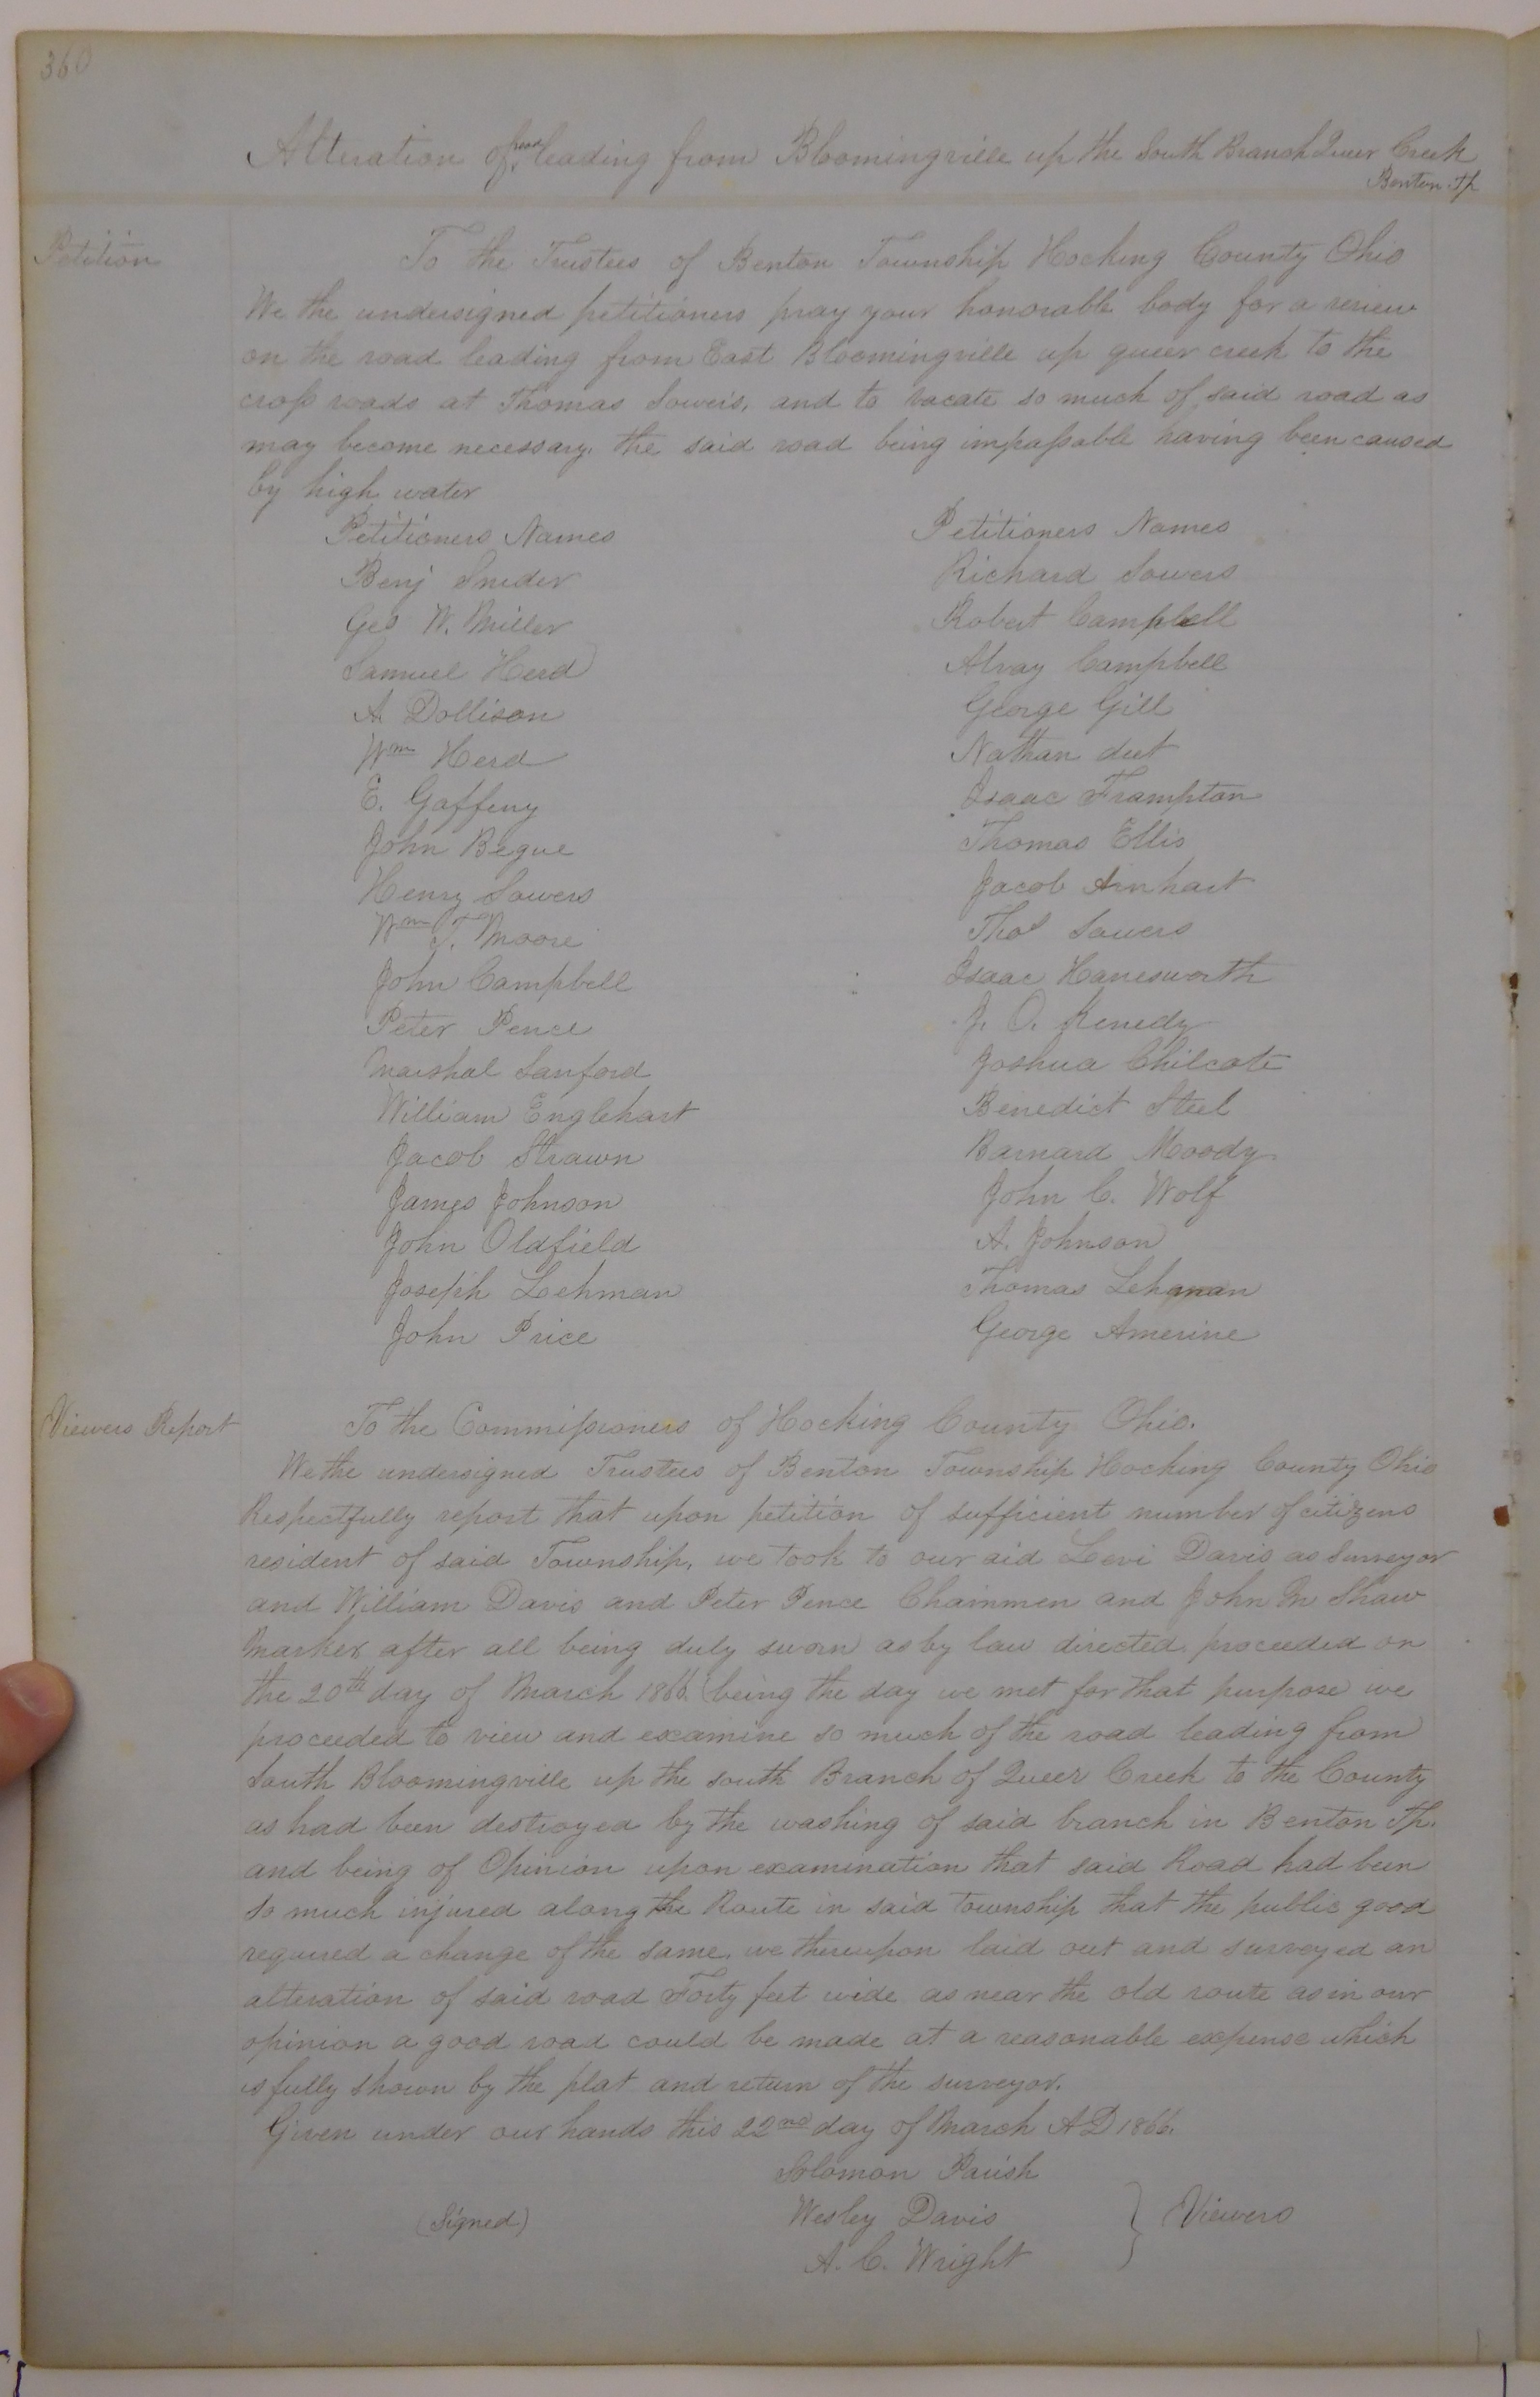 360
Alteration of road leading from Bloomingville up the South Branch Queer Creek
Benton Tp
Petition
To the Trustees of Benton Township Hocking County Ohio
We the undersigned petitioners pray your honorable body for a review
on the road leading from East Bloomingville up queer creek to the
cross roads at Thomas Sowers, and to vacate so much of said road as
may become necessary. the said road being impassable having been caused
by high water
Petitioners Names Petitioners Names
Benj Snider Richard Sowers
Geo W. Miller Robert Campbell
Samuel Herd Alvay Campbell
A. Dollison George Gill
Wm Herd Nathan
E. Gaffeny Isaac Frampton
John Begue Thomas Ellis
Henry Sowers Jacob Arnhart
Wm T. Moore Thos Sowers
John Campbell Isaac Hanesworth
Peter Pence J. O. Kenedy
Marshal Sanford Joshua Chilcote
William Englehart Benedict Steel
Jacob Strawn Barnard Moody
James Johnson John C. Wolf
John Oldfield A. Johnson
Joseph Lehman Thomas Lehman
John Price George Amerine
Viewers Report
To the Commissioners of Hocking County Ohio.
We the undersigned Trustees of Benton Township Hocking County Ohio
Respectfully report that upon petition of sufficient number of citizens
resident of said Township, we took to our aid Levi Davis as Surveyor
and William Davis and Peter Pence Chainmen and John M Shaw
Marker after all being duly sworn as by law directed, proceeded on
the 20th day of March 1866. (being the day we met for that purpose we
proceeded to view and examine so much of the road leading from
South Bloomingville up the south Branch of Queer Creek to the County
as had been destroyed by the washing of said branch in Benton Tp.
and being of Opinion upon examination that said Road had been
so much injured along the Route in said township that the public good
required a change of the same, we thereupon laid out and surveyed an
alteration of said road Forty feet wide as near the old route as in our
opinion a good road could be made at a reasonable expense which
is fully shown by the plat and return of the surveyor.
Given under our hands this 22nd day of March AD 1866.
Solomon Parish
(Signed) Wesley Davis } Viewers
A. C. Wright